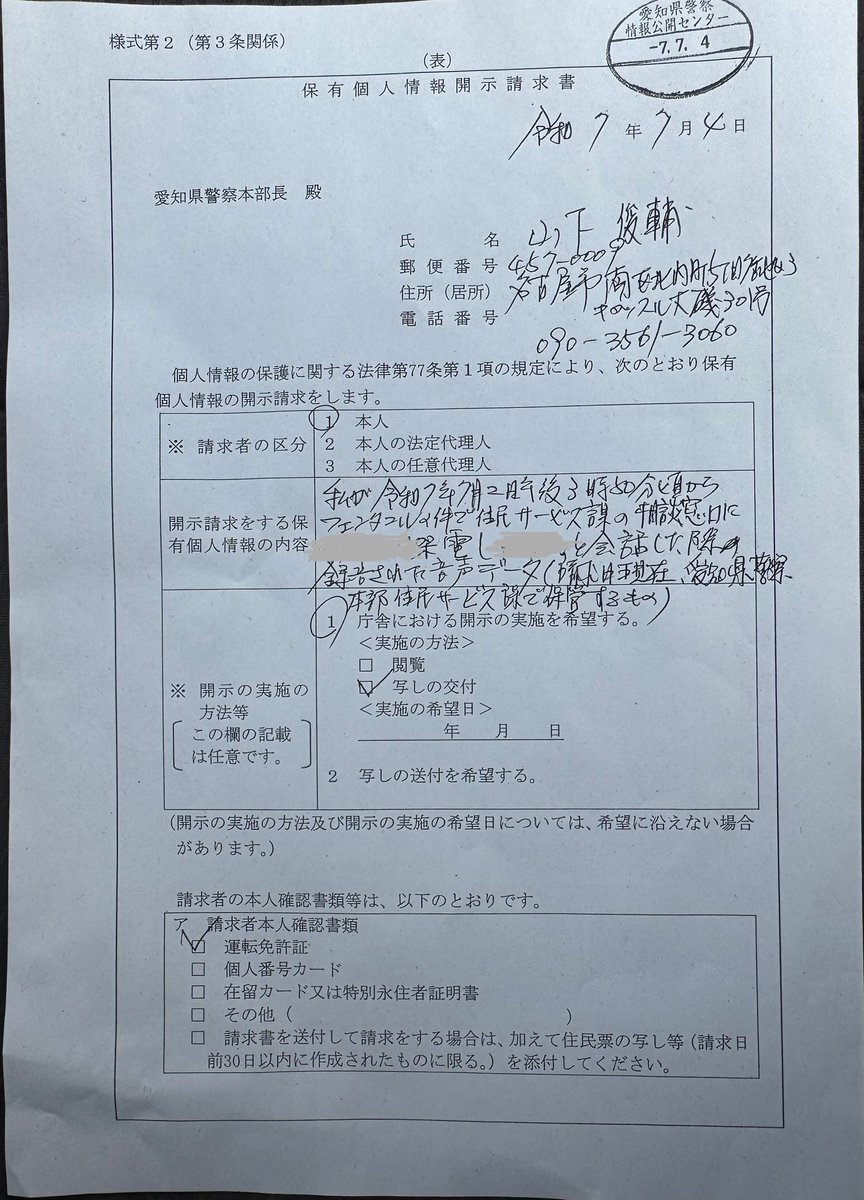 愛知県警察
情報公開センター
-7.7.4
様式第2（第3条関係）
（表）
保有個人情報開示請求書
令和 7 年 7 月 4 日
愛知県警察本部長　殿
氏　　名 山下 俊輔
郵便番号 457-0009
住所（居所） 名古屋市南区
キャッスル大磯301号
電話番号 090-3561-3060
個人情報の保護に関する法律第77条第1項の規定により、次のとおり保有
個人情報の開示請求をします。
※ 請求者の区分
1　本人
2　本人の法定代理人
3　本人の任意代理人
開示請求をする保
有個人情報の内容
私が令和7年7月2日午後3時50分頃から
フェンタニルの件で住民サービス課の相談窓口に
架電し と会話した際の
録音された音声データ（請求日現在、愛知県警察
本部住民サービス課で保管するもの）
※ 開示の実施の
方法等
この欄の記載
は任意です。
1　庁舎における開示の実施を希望する。
＜実施の方法＞
□　閲覧
☑　写しの交付
＜実施の希望日＞
年　　月　　日
2　写しの送付を希望する。
（開示の実施の方法及び開示の実施の希望日については、希望に沿えない場合
があります。）
請求者の本人確認書類等は、以下のとおりです。
ア　請求者本人確認書類
☑　運転免許証
□　個人番号カード
□　在留カード又は特別永住者証明書
□　その他（　　　　　　　　　　　　）
□　請求書を送付して請求をする場合は、加えて住民票の写し等（請求日
前30日以内に作成されたものに限る。）を添付してください。